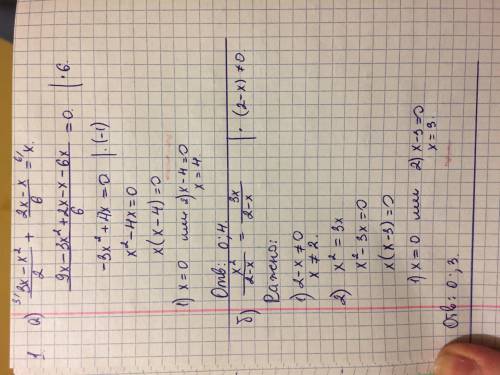 1. а) 3/ (3x - x²)/2 + (2x - x)/6 = 6/ x.
(9x - 3x² + 2x - x - 6x)/6 = 0 | · 6.
-3x² + 4x = 0 | · (-1)
x² - 4x = 0
x(x - 4) = 0
1) x = 0 или 2) x - 4 = 0
x = 4.
Отв: 0; 4.
б) x²/(2 - x) = 3x/(2 - x) | · (2 - x) ≠ 0.
1) 2 - x ≠ 0
x ≠ 2.
2) x² = 3x
x² - 3x = 0
x(x - 3) = 0
1) x = 0 или 2) x - 3 = 0
x = 3.
Отв: 0; 3.